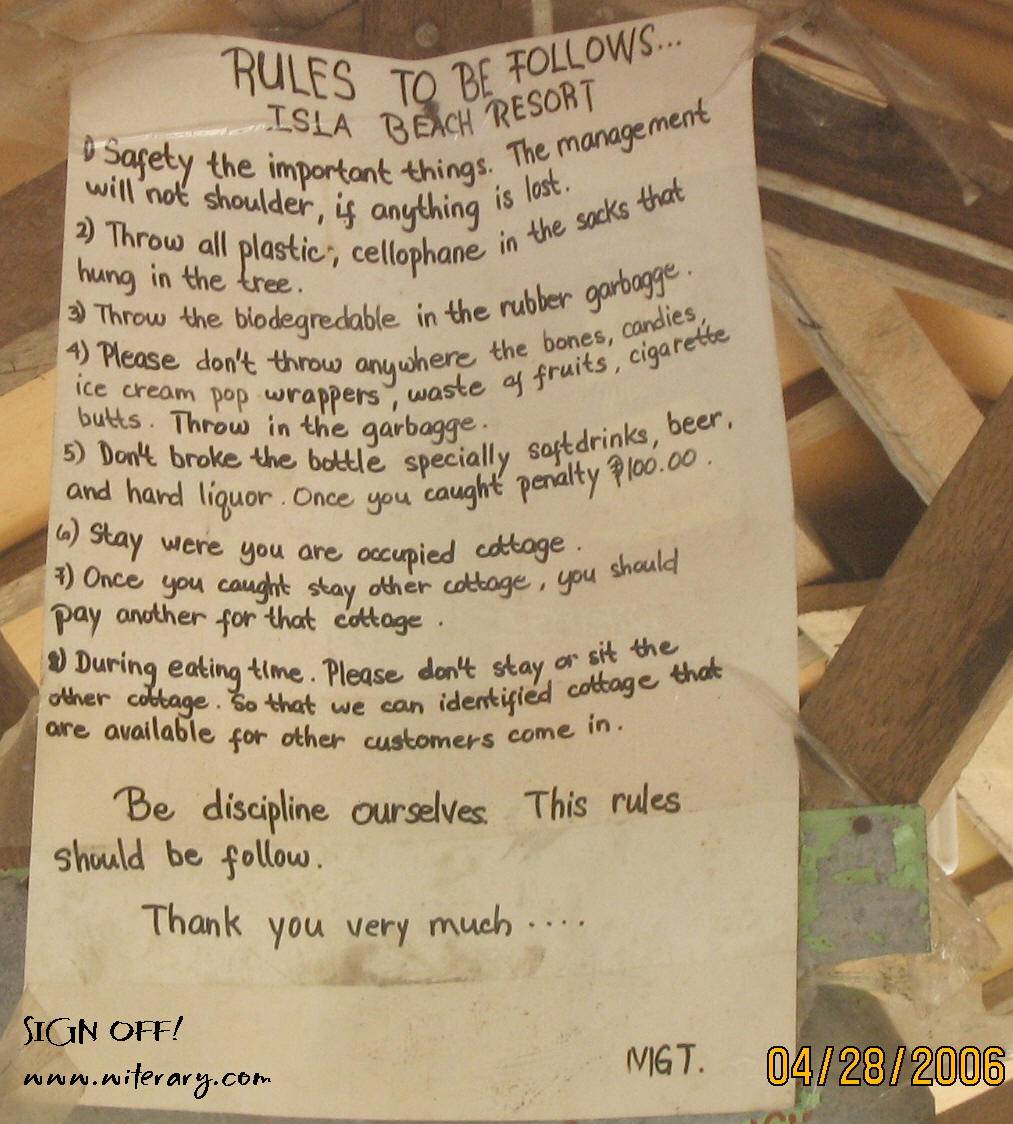 RULES TO BE FOLLOWS...
ISLA BEACH RESORT
1) Safety the important things. The management
will not shoulder, if anything is lost.
2) Throw all plastic, cellophane in the sacks that
hung in the tree.
3) Throw the biodegredable in the rubber garbagge.
4) Please don't throw anywhere the bones, candies,
ice cream pop wrappers, waste of fruits, cigarette
butts. Throw in the garbagge.
5) Don't broke the bottle specially softdrinks, beer,
and hard liquor. Once you caught penalty ₱100.00.
6) Stay were you are occupied cottage.
7) Once you caught stay other cottage, you should
pay another for that cottage.
8) During eating time. Please don't stay or sit the
other cottage. So that we can identified cottage that
are available for other customers come in.
Be discipline ourselves. This rules
should be follow.
Thank you very much ....
MGT.
SIGN OFF!
www.witerary.com
04/28/2006